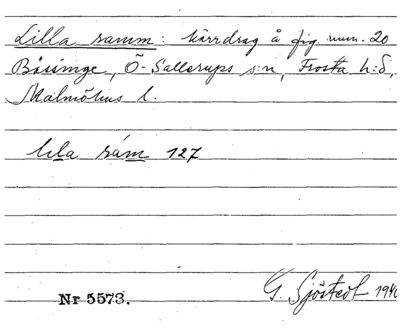 Lilla ramm: kärrdrag å fig. num. 20
Bosinge, Ö. Sallerups s:n, Frosta h:d,
Malmöhus l.
lila rám 127
Nr 5573. G. Sjöstedt 1940